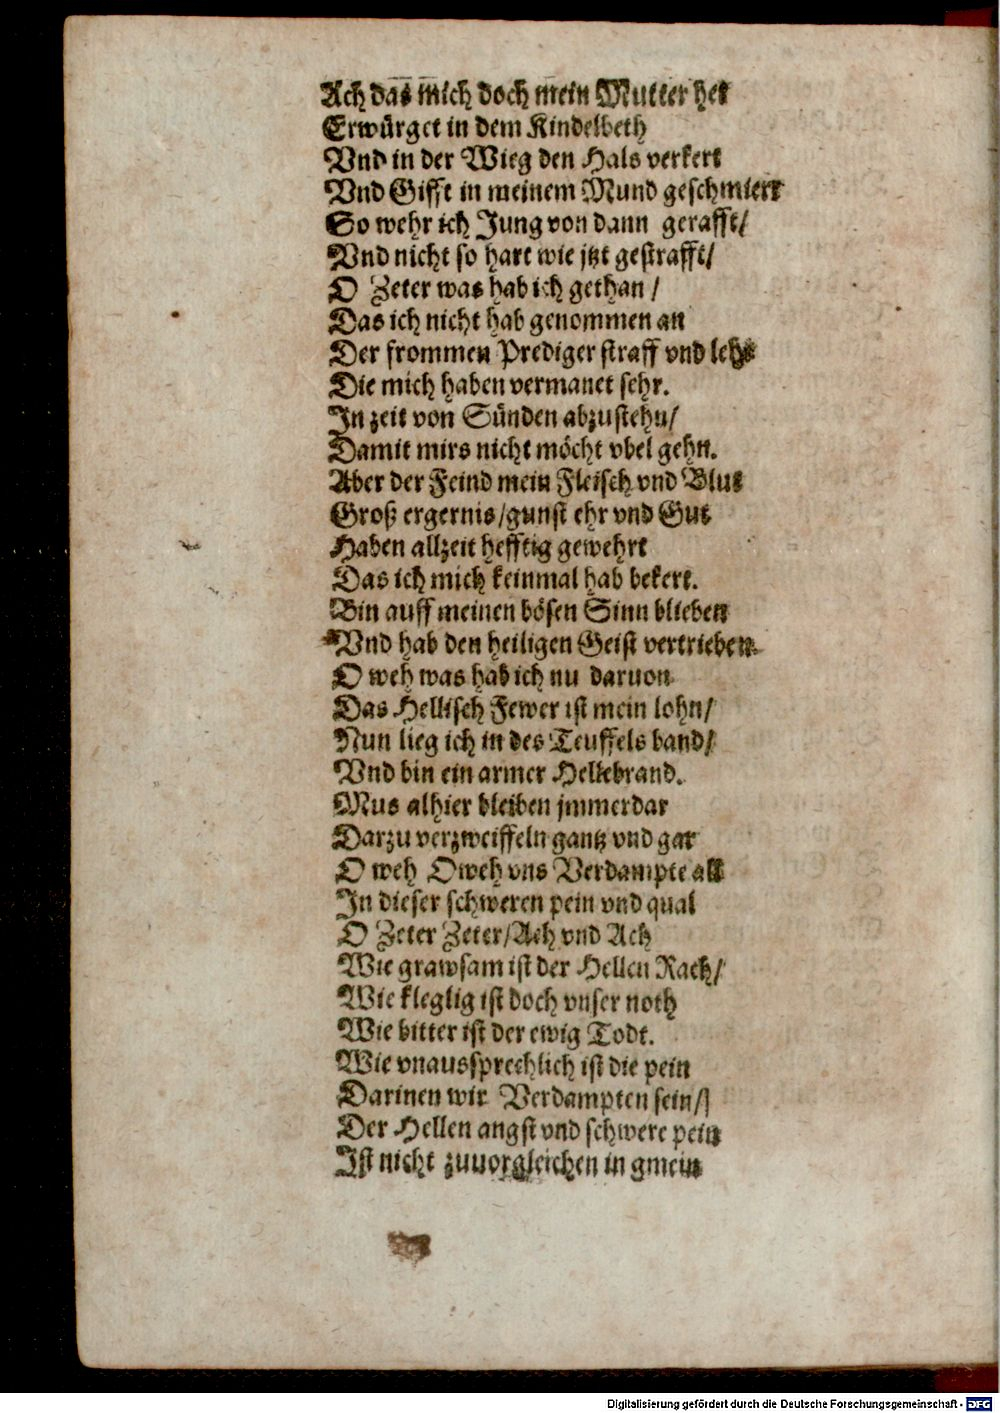 Ach das mich doch mein Mutter het
Erwürget in dem Kindelbeth
Vnd in der Wieg den Hals verkert
Vnd Gifft in meinem Mund geschmiert
So wehr ich Jung von dann gerafft/
Vnd nicht so hart wie jtzt gestrafft/
O Zeter was hab ich gethan /
Das ich nicht hab genommen an
Der frommen Prediger straff vnd lehr
Die mich haben vermanet sehr.
In zeit von Sünden abzustehn/
Damit mirs nicht möcht vbel gehn.
Aber der Feind mein Fleisch vnd Blut
Groß ergernis/gunst ehr vnd Gut
Haben allzeit hefftig gewehrt
Das ich mich keinmal hab bekert.
Bin auff meinen bösen Sinn blieben
Vnd hab den heiligen Geist vertrieben.
O weh was hab ich nu daruon
Das Hellisch Fewer ist mein lohn/
Nun lieg ich in des Teuffels band/
Vnd bin ein armer Hellebrand.
Mus alhier bleiben jmmerdar
Darzu verzweiffeln gantz vnd gar
O weh O weh vns Verdampte all
In dieser schweren pein vnd qual
O Zeter Zeter/Ach vnd Ach
Wie grawsam ist der Hellen Rach/
Wie kleglig ist doch vnser noth
Wie bitter ist der ewig Todt.
Wie vnaussprechlich ist die pein
Darinen wir Verdampten sein/
Der Hellen angst vnd schwere pein
Ist nicht zuuorgleichen in gmein
Digitalisierung gefördert durch die Deutsche Forschungsgemeinschaft - DFG